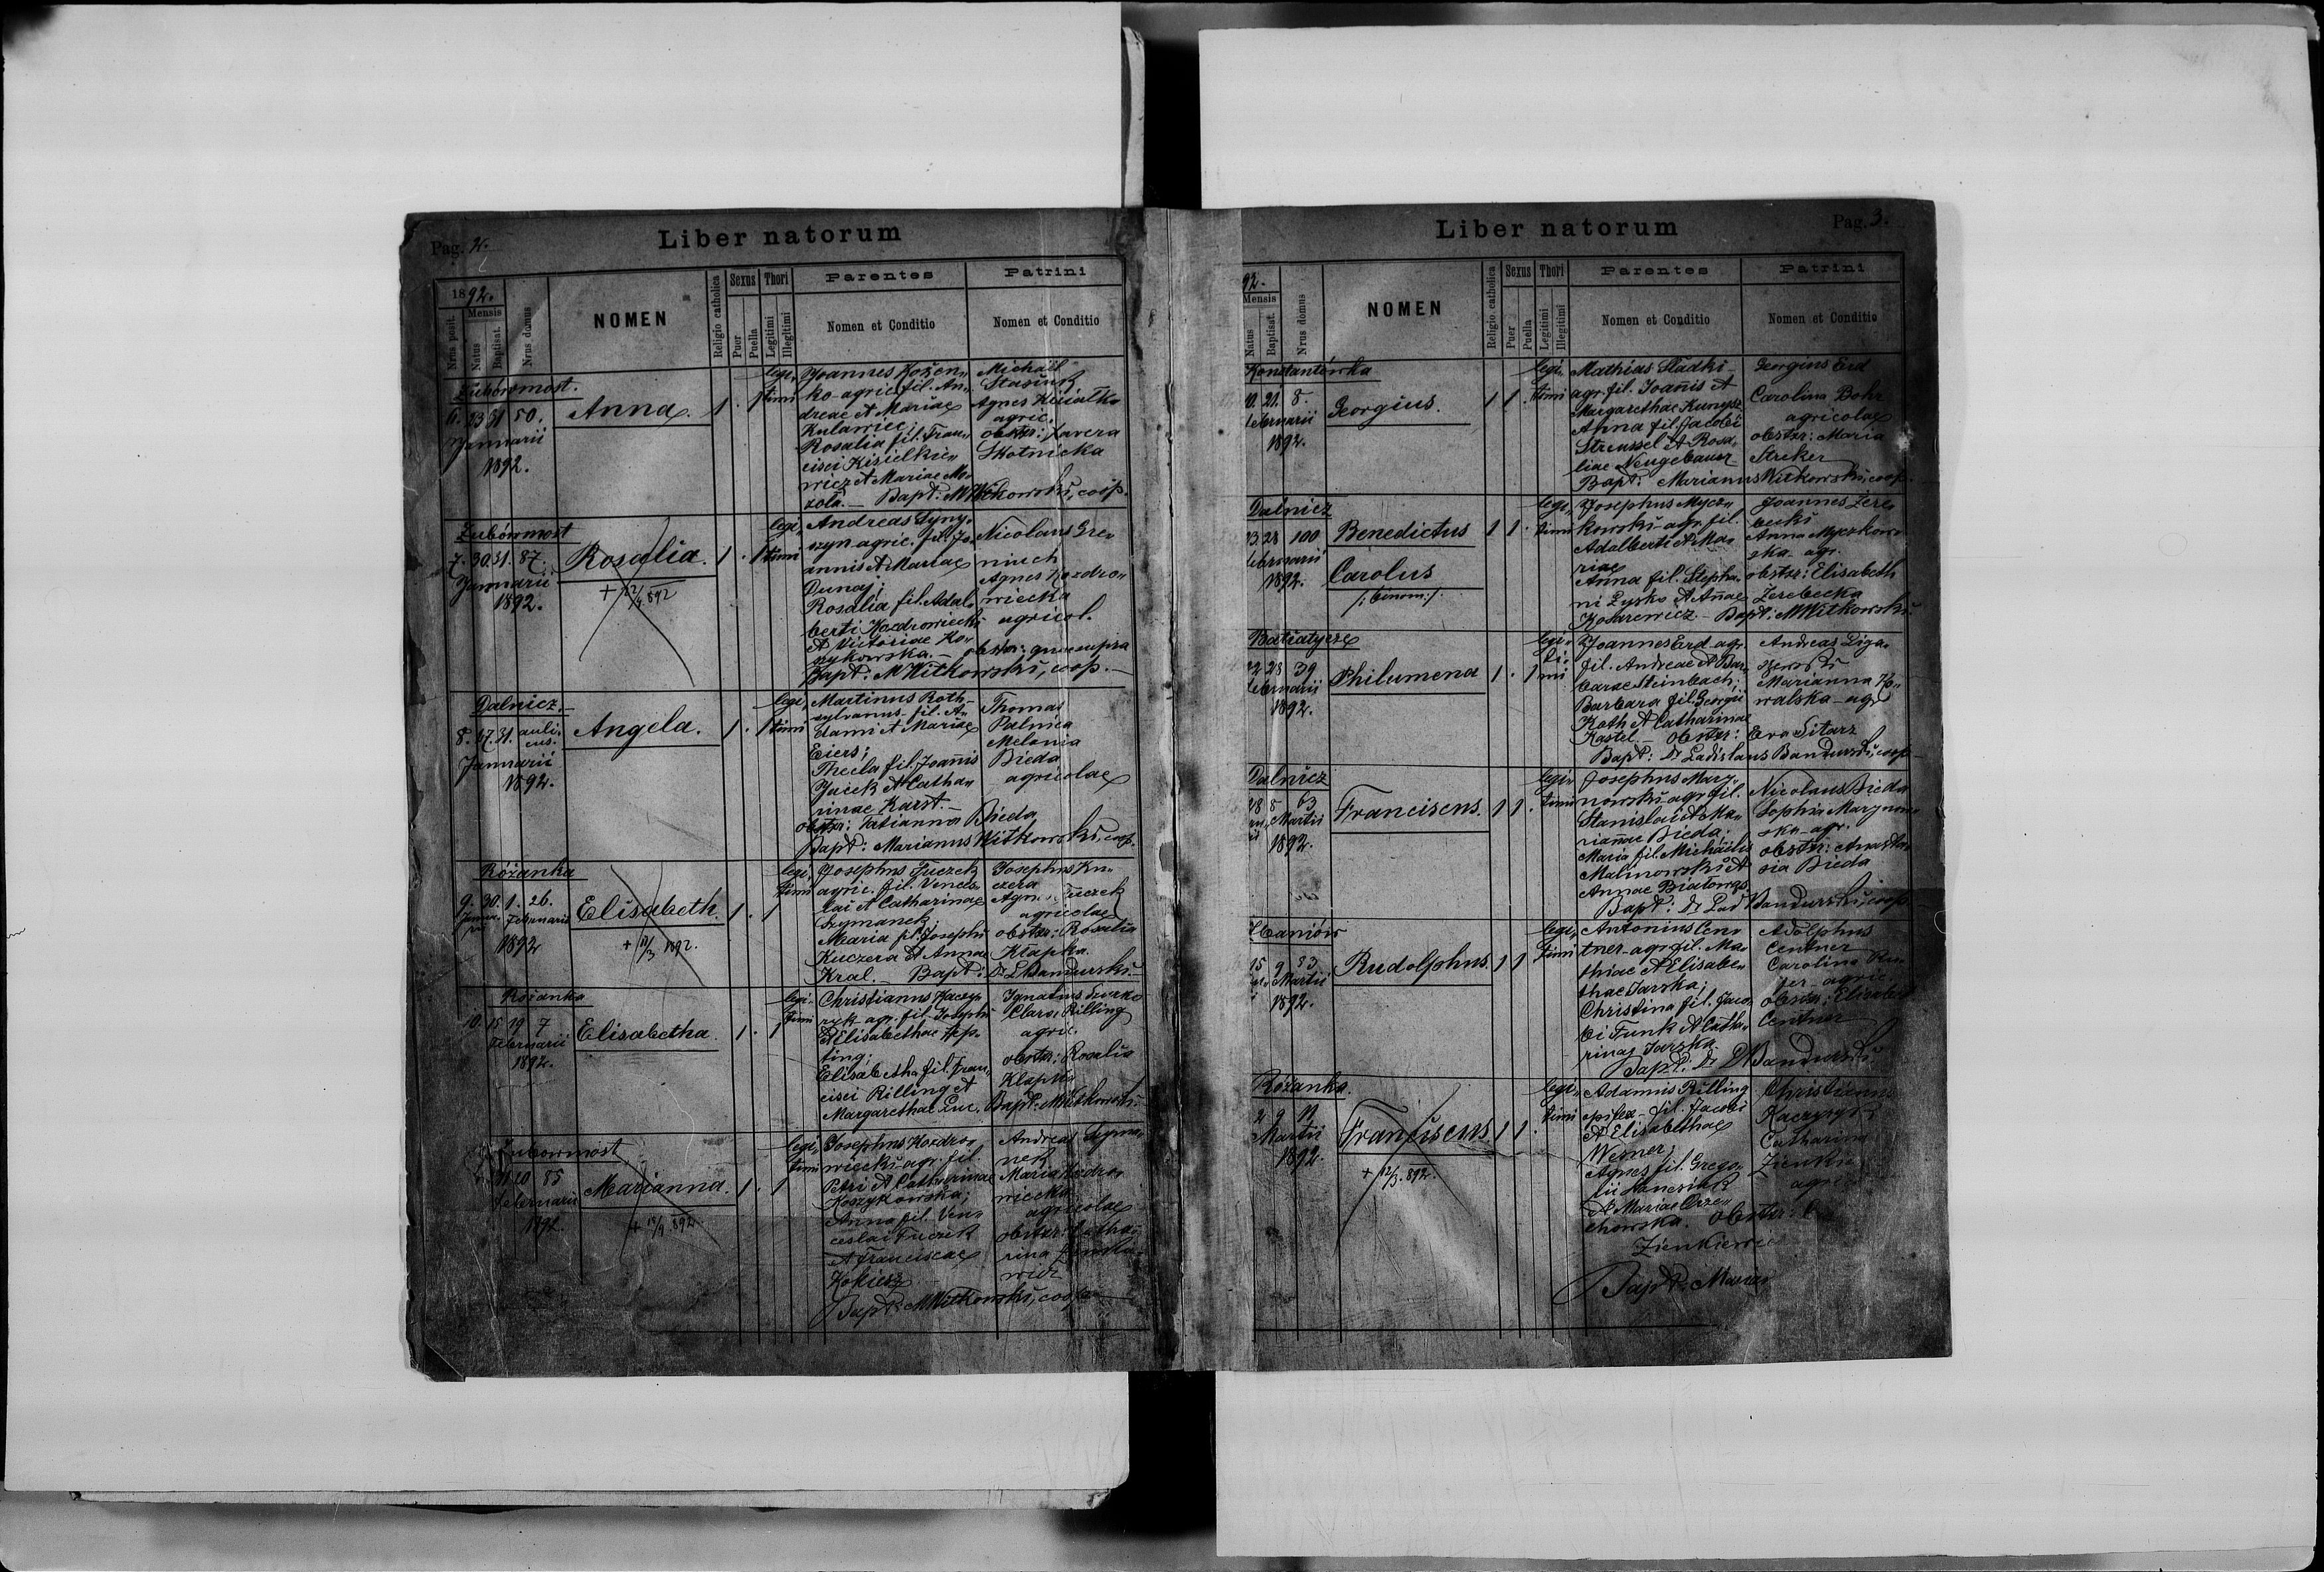 Pag. 2.
Liber natorum
1892.
Nrus posit.
Mensis
Natus
Baptisat.
Nrus domus
NOMEN
Religio catholica
Sexus
Puer
Puella
Thori
Legitimi
Illegitimi
Parentes
Nomen et Conditio
Patrini
Nomen et Conditio
Żubówmost.
6. 23 31 50.
Januarii
1892.
Anna.
1 . 1
legi„
timi
Joannes Kożen„
ko - agric. fil. An„
dreae et Mariae
Kulawiec;
Rosalia fil. Fran„
cisci Kisielkie„
wicz et Mariae Mo„
zola. — Bapt: MWitkowski, coop.
Michaël
Stasiuk
Agnes
agric.
obstr: Xavera
Skotnicka
Żubówmost
7. 30. 31. 87.
Januarii
1892.
Rosalia.
+ 22/4 892
1 . 1
legi„
timi
Andreas Syny„
szyn agric. fil. Jo„
annis et Mariae
Dunaj;
Rosalia fil. Adal„
berti Kozdrowiecki
et Victoriae Ko„
szykowska. —
Bapt: MWitkowski, coop. —
Nicolaus Gre„
niuch
Agnes Kozdro„
wiecka
agricol.
obstr: quae supra
Dalnicz. —
8. 27. 31. auli„
cus.
Januarii
1892.
Angela.
1 . 1
legi„
timi
Martinus Roth
sylvanus - fil. A„
dami et Mariae
Eiers;
Thecla fil. Joannis
Jacek et Catha„
rinae Karst. —
obstr: Tatianna Bieda
Bapt: Marianus Witkowski, coop.
Thomas
Palnica
Melania
Bieda
agricolae
Różanka
9. 30. 1. 26.
Janua„
rii
Februarii
1892
Elisabeth.
+ 11/3 1892.
1 . 1
legi„
timi
Josephus Tuczek
agric. fil. Vences„
lai et Catharinae
Szymanek;
Maria fil. Josephi
Kuczera et Annae
Kral. Bapt: Dr LBandurski
Josephus Ku„
czera
Agnes Tuczek
agricolae
obstr: Rosalia
Kłapka.
Różanka
10. 15 19 7
Februarii
1892.
Elisabetha.
1 . 1
legi„
timi
Christianus Kaczy„
ryk - agr. fil. Josephi
et Elisabethae Hep„
ting;
Elisabetha fil. Fran„
cisci Rilling et
Margarethae Luc. Bapt: MWitkowski
Ignatius Szurko
Clara Rilling
agric.
obstr: Rosalia
Kłapka
Żubowmost
11 20 85
Februarii
1892.
Marianna.
+ 892
1 . 1
legi„
timi
Josephus Kozdro„
wiecki - agr. fil.
Petri et Catharinae
Koszykowska;
Anna fil. Ven„
ceslai Tuczek
et Franciscae
Kokiesz
Bapt: MWitkowski, coop.
Andreas Szyma„
nek
Maria Kozdro„
wiecka
agricolae
obstr: Catha„
rina
wicz
Liber natorum
Pag. 3.
92.
Mensis
Natus
Baptisat.
Nrus domus
NOMEN
Religio catholica
Sexus
Puer
Puella
Thori
Legitimi
Illegitimi
Parentes
Nomen et Conditio
Patrini
Nomen et Conditio
Konstantówka
21. 8.
Februarii
1892.
Georgius.
1 1 .
legi„
timi
Mathias Sladki -
agr. fil. Joannis et
Margarethae Kunysz
Anna fil. Jacobi
Streussel et Rosa„
liae Neugebauer
Bapt: Marianus Witkowski, coop.
Georgius Erd
Carolina Bohr
agricolae
obstr: Maria
Streker
Dalnicz
23 28 100
Februarii
1892.
Benedictus
Carolus
/: binom: /.
1 1 .
legi„
timi
Josephus Mycz„
kowski - agr. fil.
Adalberti et Ma„
riae
Anna fil. Stepha„
ni Łysko et Annae
Kosarewicz. - Bapt: MWitkowski
Joannes Zere„
becki
Anna Myczkow„
ska - agr.
obstr: Elisabeth
Zerebecka
Batiatycze
22 28 39
Februarii
1892.
Philumena
1 . 1
legi„
ti„
mi
Joannes Erd - agr.
fil. Andreae et Bar„
barae Steinbach;
Barbara fil. Georgii
Koth et Catharinae
Kastel. — obstr: Eva Sitarz
Bapt: Dr Ladislaus Bandurski, coop.
Andreas Liga„
szewski
Marianna Ko„
walska - agr
Dalnicz
28 8 63
Martii
1892.
Franciscus.
1 1 .
legi„
timi
Josephus Mary„
nowski - agr. fil.
Stanislai et Ma„
riannae Bieda;
Maria fil. Michaëlis
Malinowski et
Annae Białowąs
Bapt: Dr Lad Bandurski, coop.
Nicolaus Bieda
Sophia Marynow„
ska - agr.
obstr: Anasta„
sia Bieda
Chaniów
15 9 83
Martii
1892.
Rudolphus.
1 1
legi„
timi
Antonius Cen„
tner - agr. fil. Ma„
thiae et Elisabe„
thae Jarska;
Christina fil. Jaco„
bi Funk et Catha„
rinae Jarska.
Bapt: Dr LBandurski
Adolphus
Centner
Carolina Ku„
fer - agric.
obstr: Elisabeth
Centner
Różanka.
2 9 12
Martii
1892.
Franciscus.
+ 12/3. 892.
1 1 .
legi„
timi
Adamus Rilling
opifex - fil. Jacobi
et Elisabethae
Werner;
Agnes fil. Grego„
rii
et Mariae Orze„
chowska. obstr:
Zienkiewicz
Bapt: Marian
Christianus
Kaczyryk
Catharina
Zienkie
agric